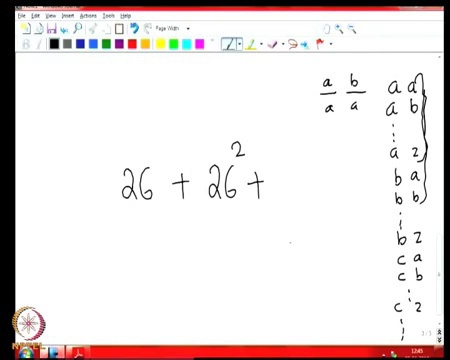 File Edit View Insert Actions Tools Help
Page Width
a b a a
a a a b
⋮
a z
b a
b b
⋮
b z
c a
c b
⋮
c z
⋮
26 + 26² +
3/3
12:45